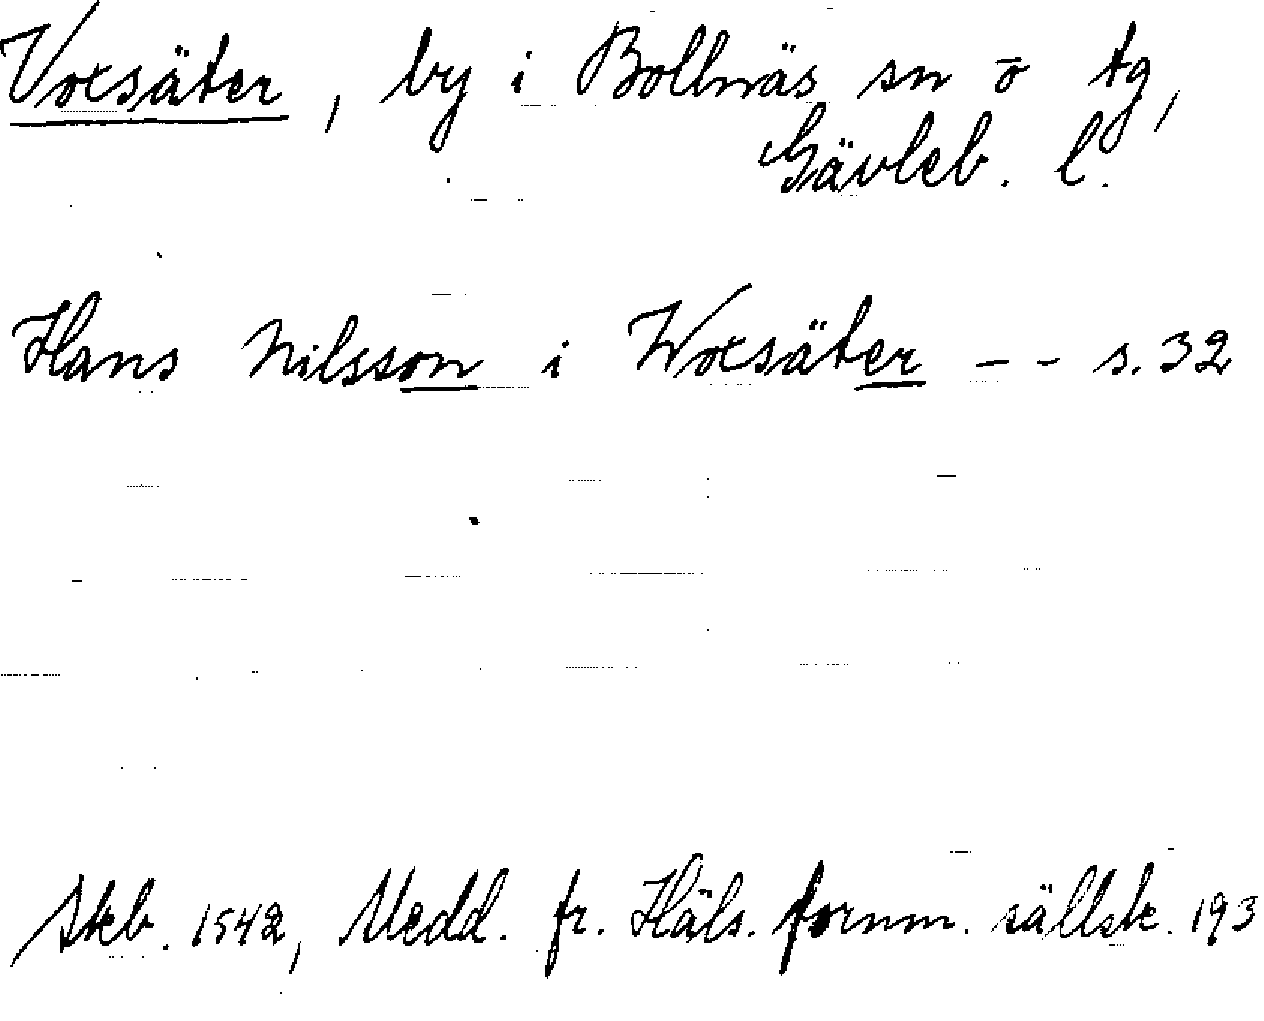 Voxsäter, by i Bollnäs sn o tg,
Gävleb. l.
Hans Nilsson i Woxsäter – – s. 32
Skb. 1542, Medd. fr. Häls. fornm. sällsk. 193